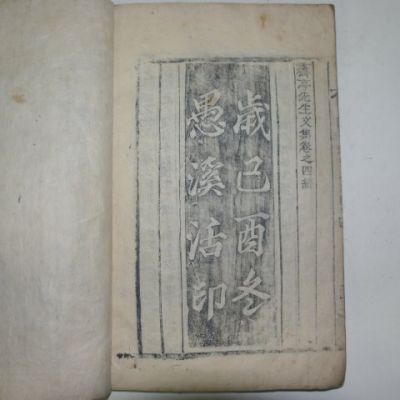 亭先生文集卷之四終
歲己酉冬
愚溪活印